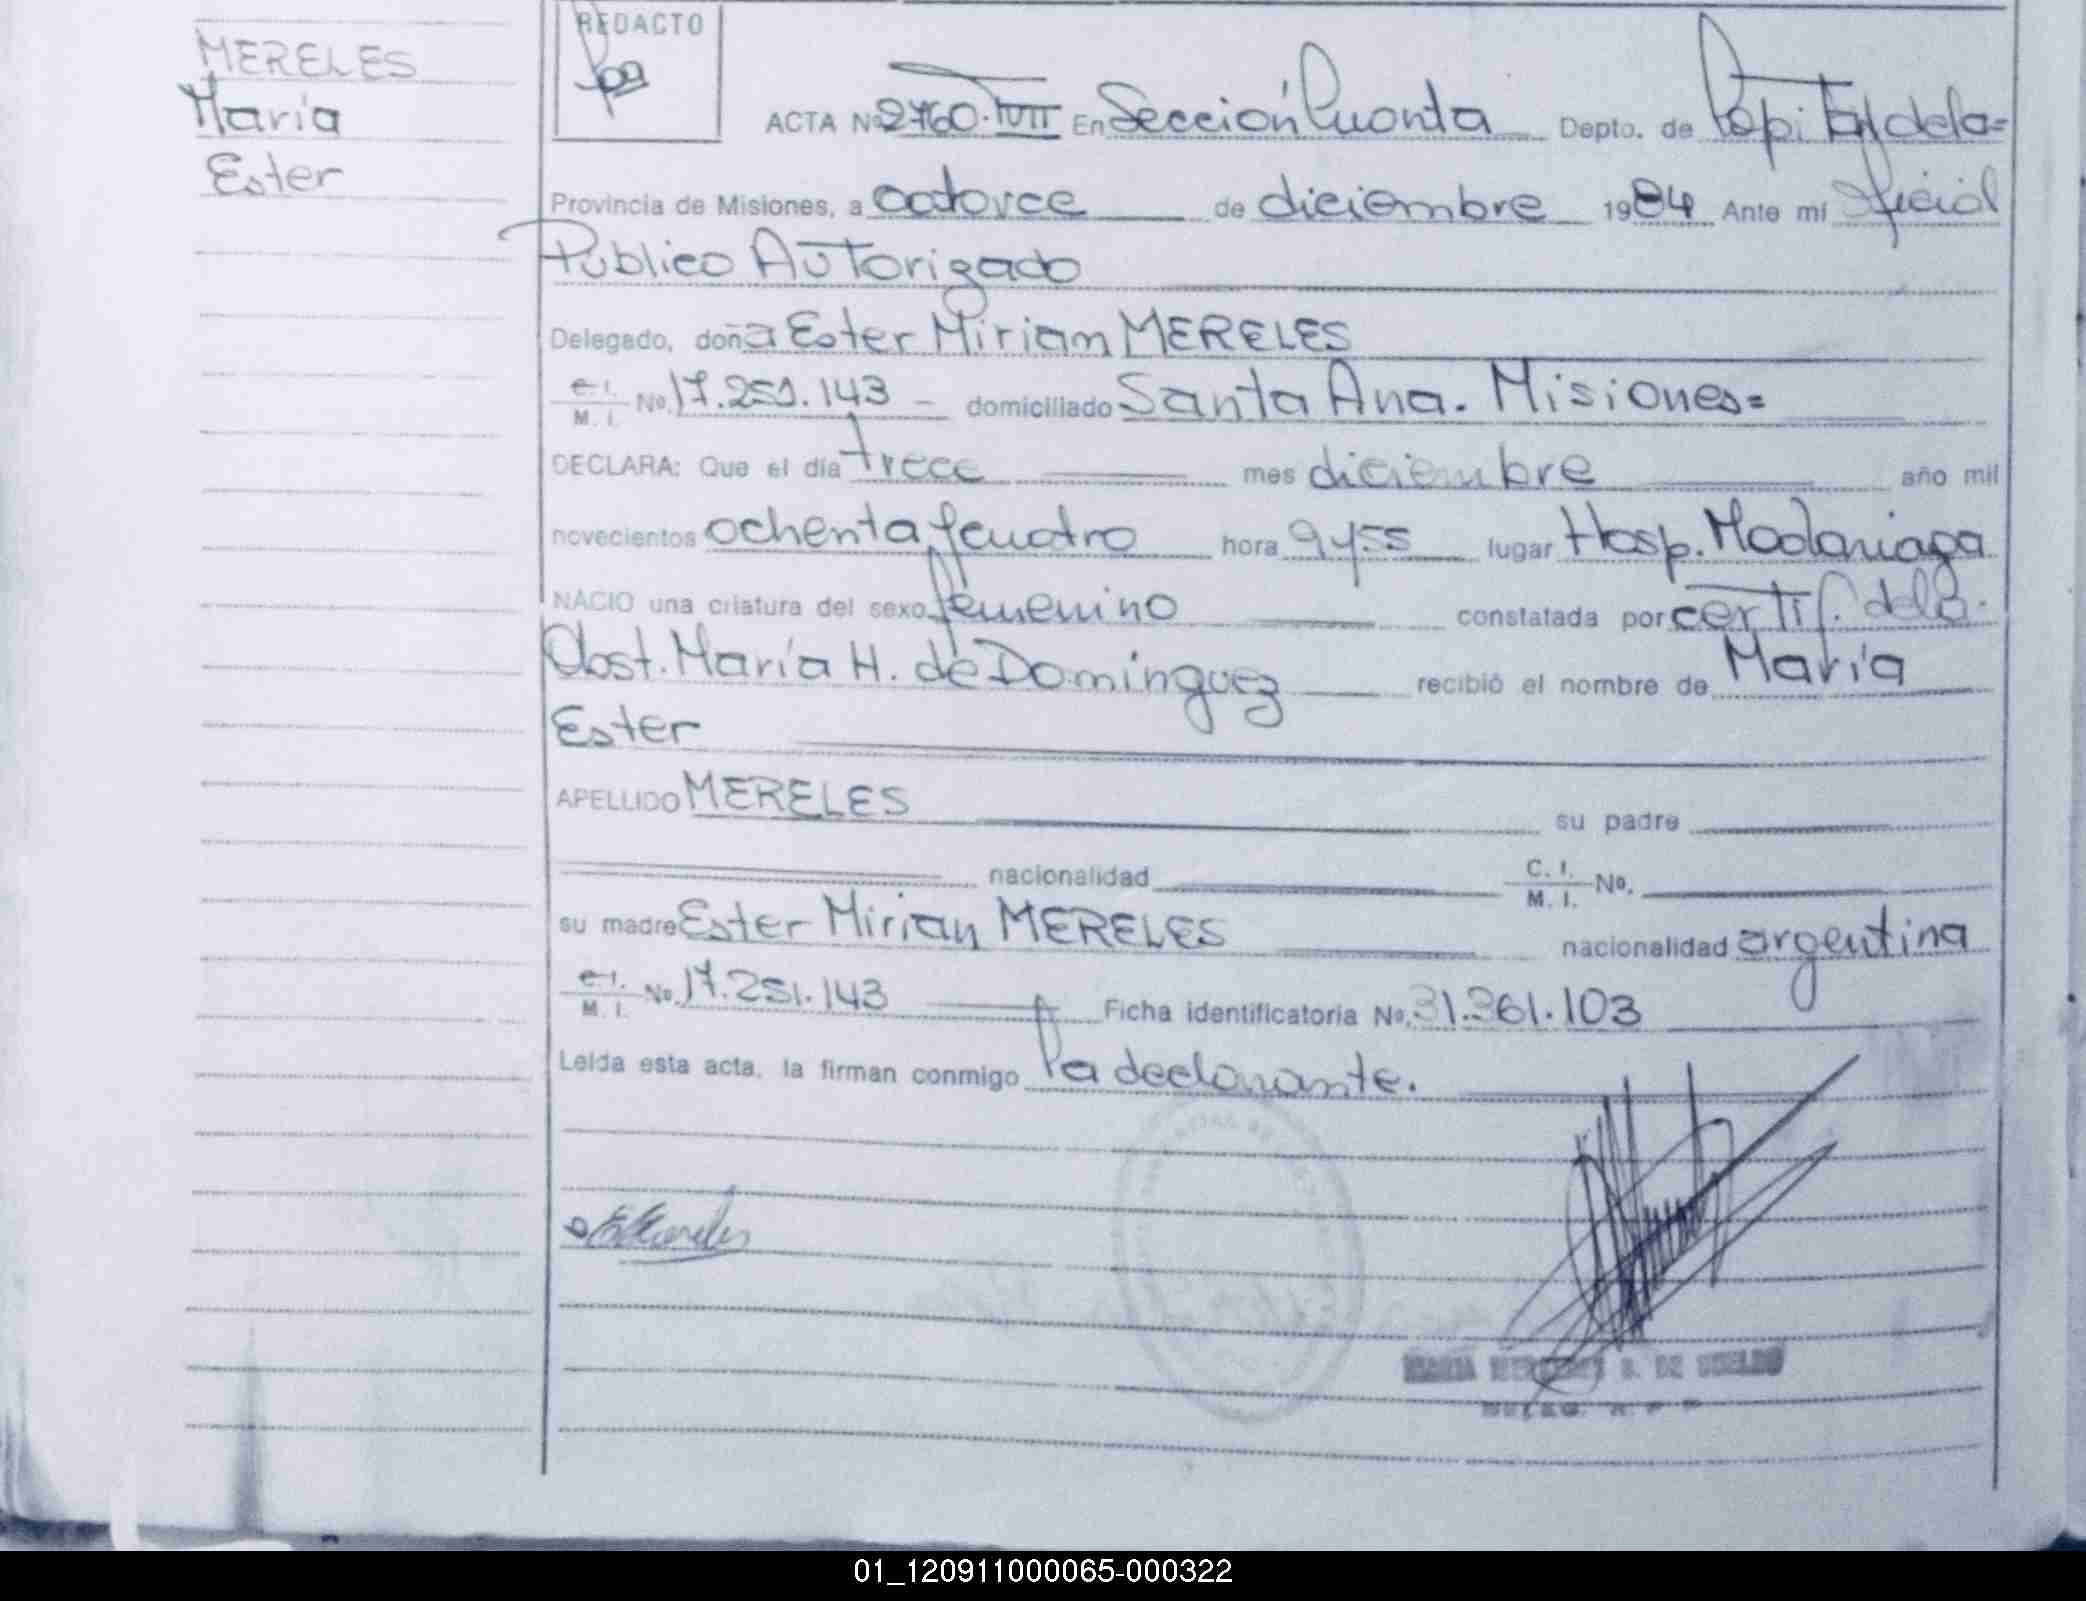 MERELES
María
Ester
REDACTO
ACTA Nº 2760. TVII En Sección Cuarta Depto. de Capital dela=
Provincia de Misiones, a catorce de diciembre 1984 Ante mí Oficial
Público Autorizado
Delegado, doña Ester Mirian MERELES
C. I. M. I. No. 17.251.143 - domiciliado Santa Ana. Misiones=
DECLARA: Que el día trece mes diciembre año mil
novecientos ochenta y cuatro hora 9 y 55 lugar Hosp. Madariaga
NACIO una criatura del sexo femenino constatada por certif. dela
Obst. María H. de Domínguez recibió el nombre de María
Ester
APELLIDO MERELES su padre
nacionalidad C. I. M. I. No.
su madre Ester Mirian MERELES nacionalidad argentina
C. I. M. I. No. 17.251.143 Ficha identificatoria No. 31.361.103
Leída esta acta, la firman conmigo la declarante.
MARIA MERCEDES B. DE
01_120911000065-000322